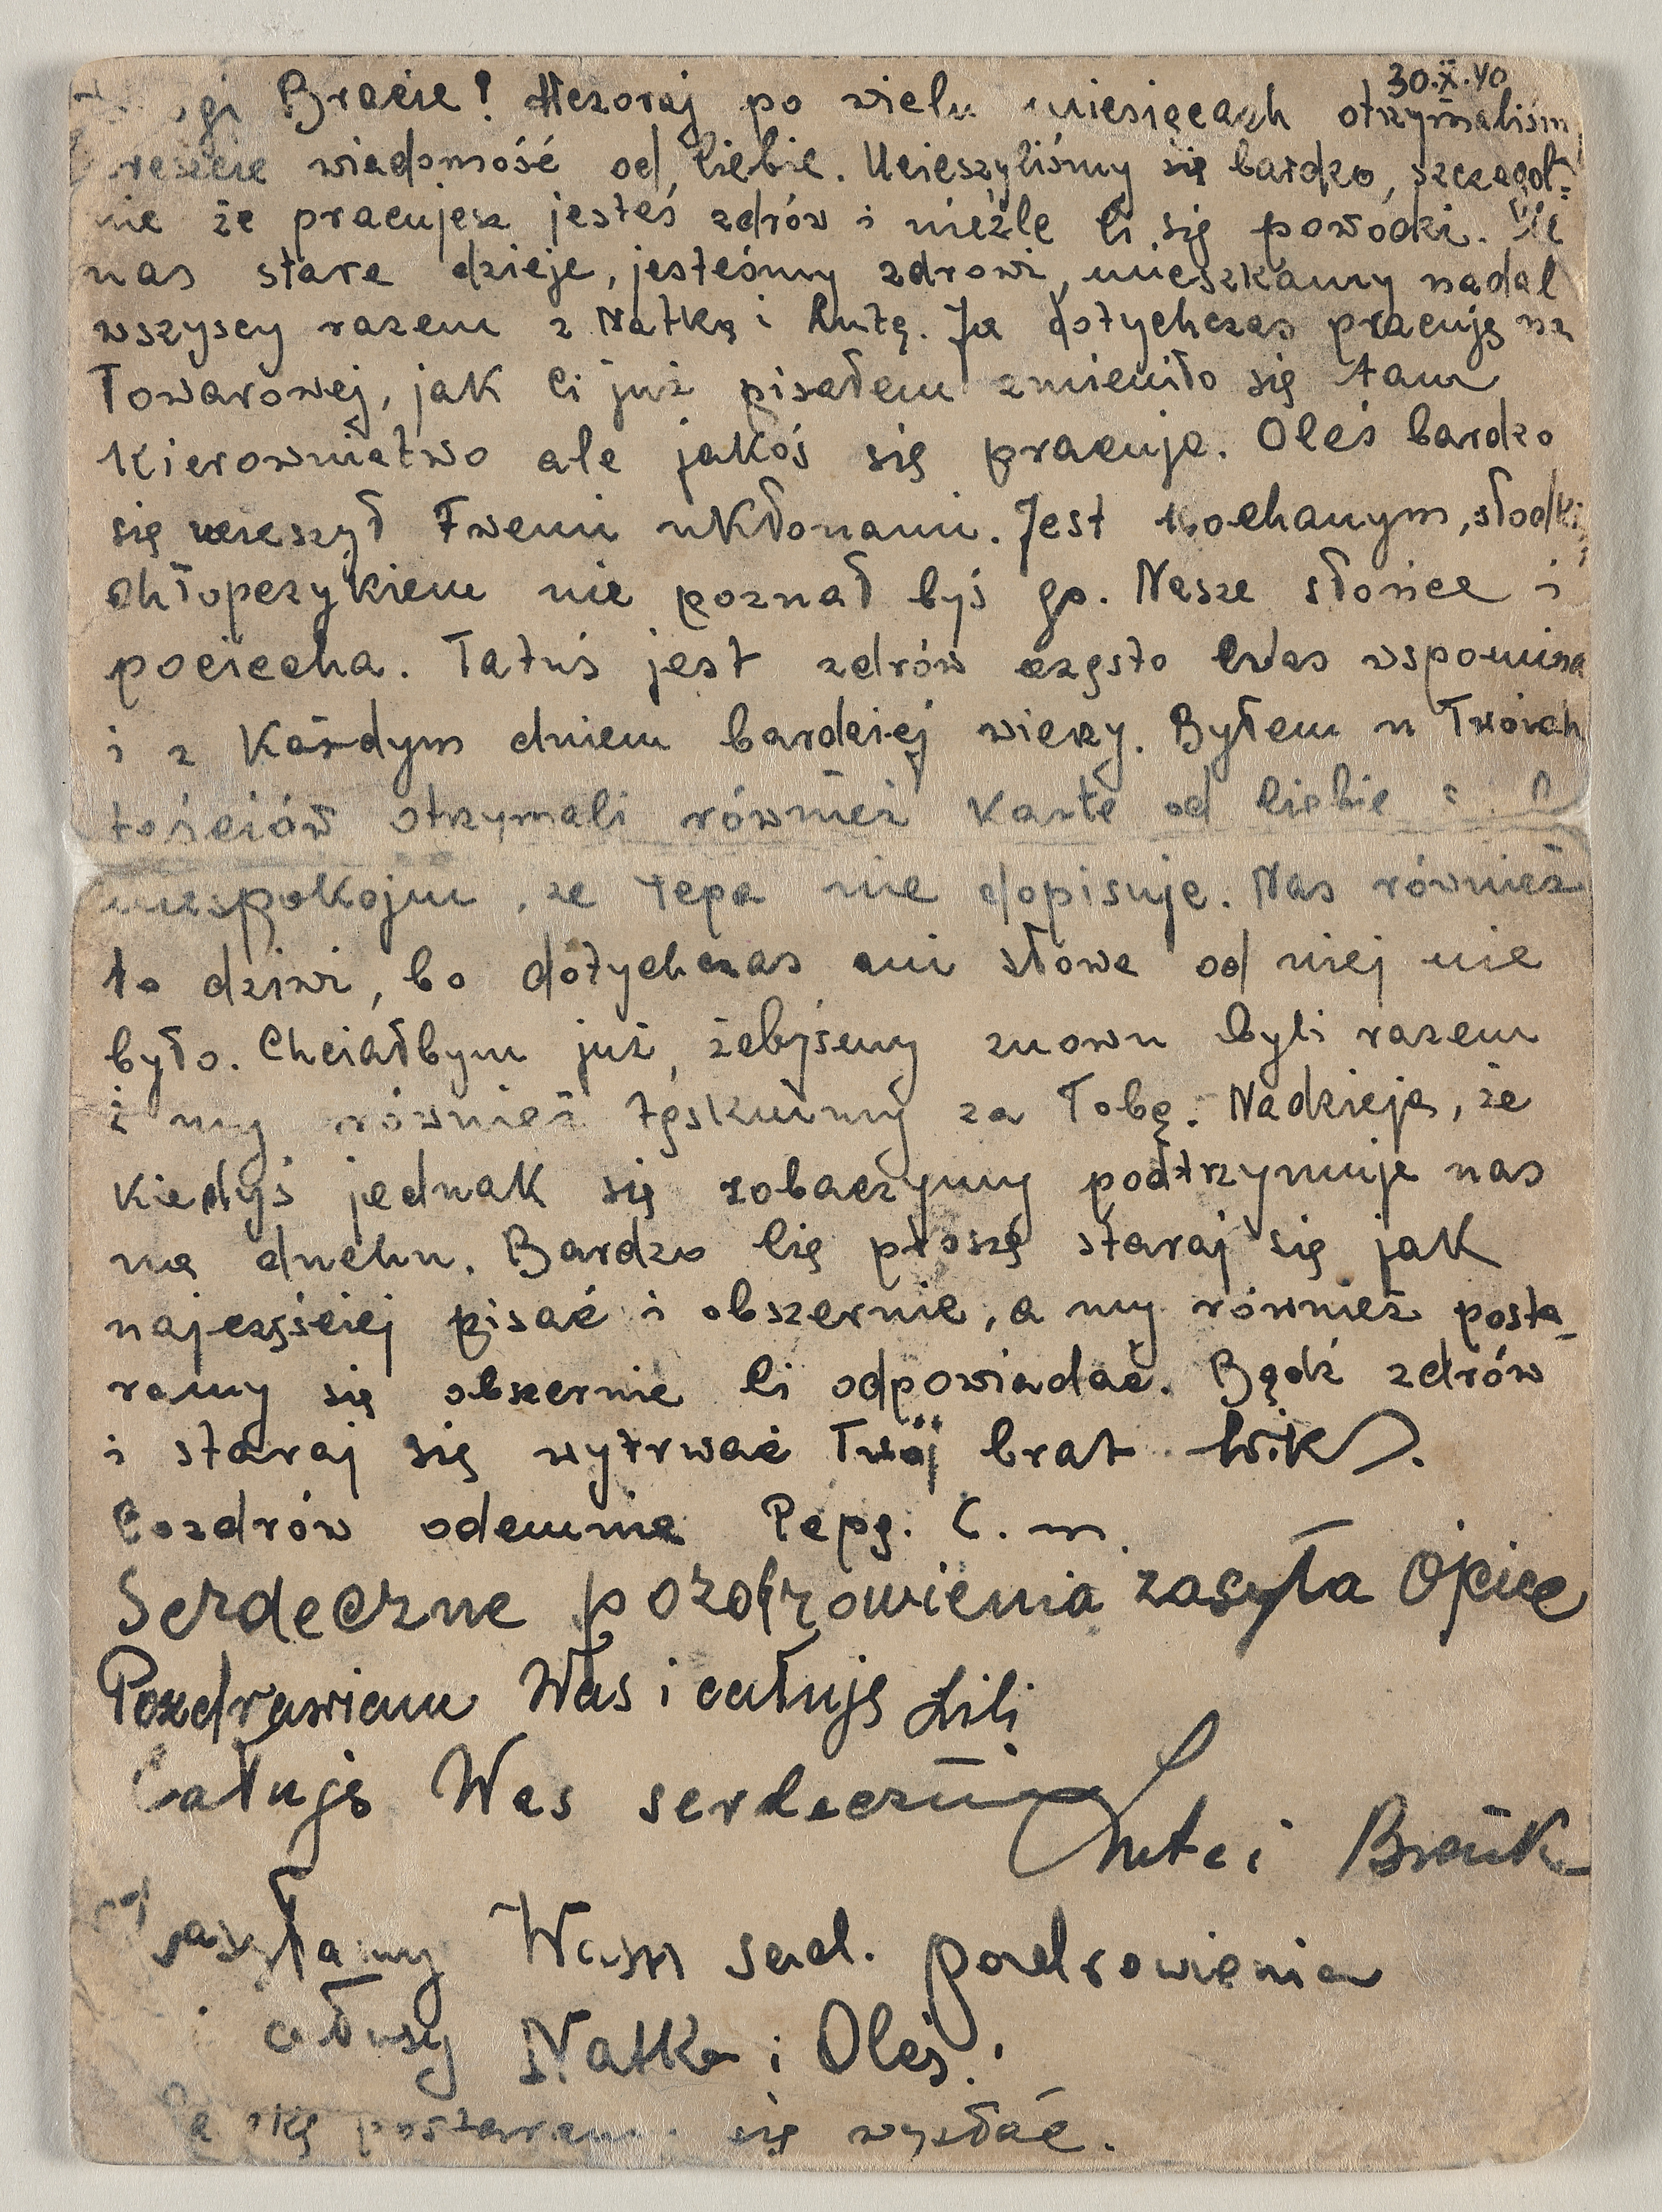 30.X.40
Bracie! Wczoraj po wielu miesięcach otrzymaliśm
reszcie wiadomość od Ciebie. Ucieszyliśmy się bardzo, szczegól-
nie że pracujesz jesteś zdrów i nieźle Ci się powodzi. U
nas stare dzieje, jesteśmy zdrowi, mieszkamy nadal
wszyscy razem z Natką i Lutą. Ja dotychczas pracuję na
Towarowej, jak Ci już pisałem zmieniło się tam
kierownictwo ale jakoś się pracuje. Oleś bardzo
się ucieszył Twemi ukłonami. Jest kochanym, słodki
chłopczykiem nie poznał byś go. Nasze słońce i
pociecha. Tatuś jest zdrów często Was wspomina
i z każdym dniem bardziej wierzy. Byłem u Twoich
teściów otrzymali również kartę od Ciebie i
niespokojni, że Pepa nie dopisuje. Nas również
to dziwi, bo dotychczas ani słowa od niej nie
było. Chciałbym już, żebyśmy znowu byli razem
i my również tęsknimy za Tobą. Nadzieja, że
kiedyś jednak się zobaczymy podtrzymuje nas
na duchu. Bardzo Cię proszę staraj się jak
najczęściej pisać i obszernie, a my również posta-
ramy się obszernie Ci odpowiadać. Bądź zdrów
i staraj się wytrwać Twój brat Wik.
Pozdrów odemnie Pepę. C. m.
Serdeczne pozdrowienia zasyła Ojciec
Pozdrawiam Was i całuję Lili
Całuję Was serdecznie
Luta i
Zasyłamy Wam serd. pozdrowienia
i całusy Natka i Oleś.
postaram się wysłać.